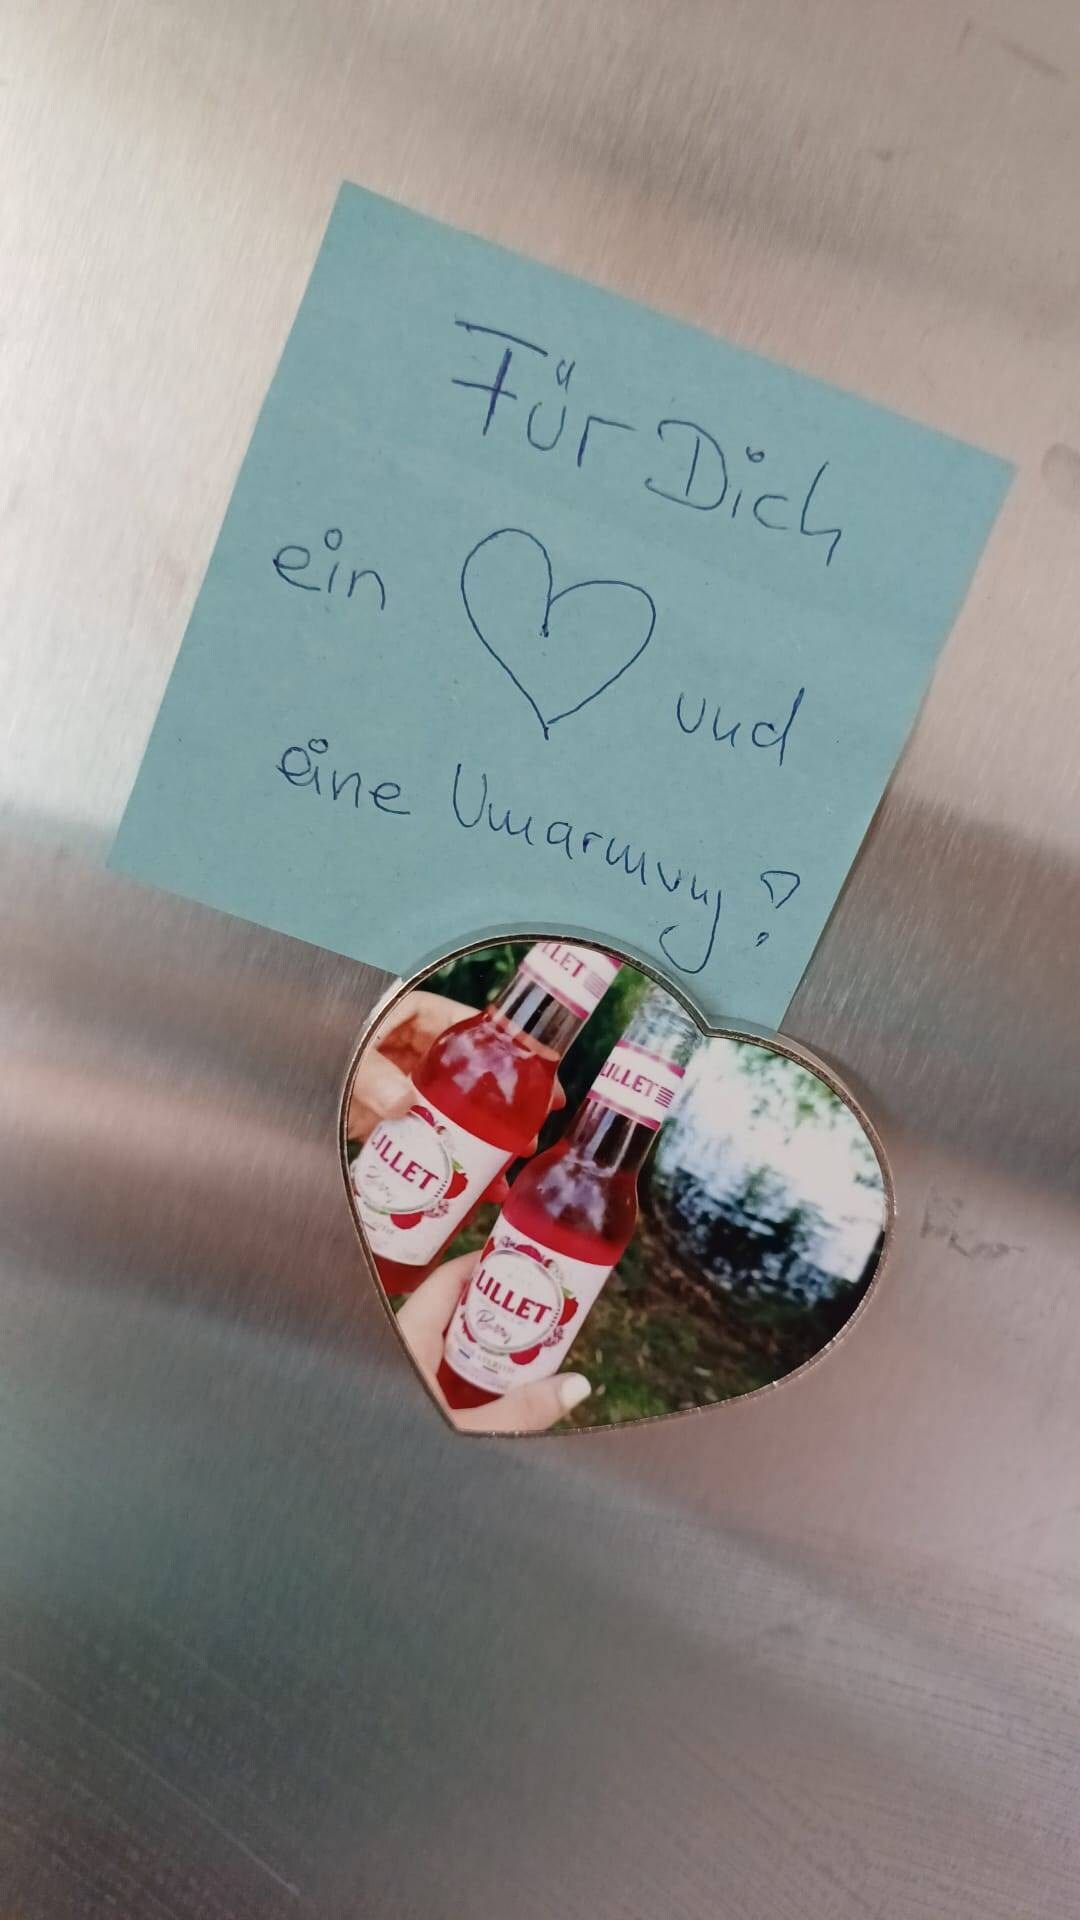 Für Dich
ein ♡ und
eine Umarmung!
LILLET
LILLET
LILLET
Berry
LILLET
Berry